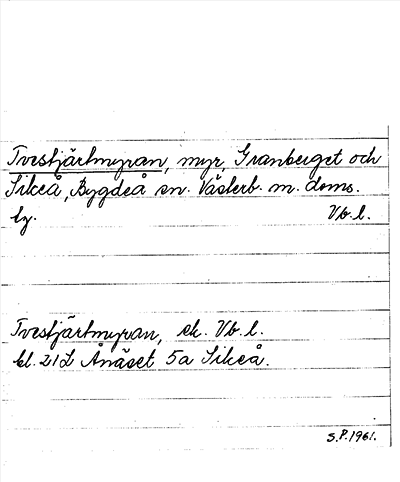 Tvestjärtmyran, myr, Granberget och
Sikeå, Bygdeå sn. Västerb. m. doms.
lg. Vb. l.
Tvestjärtmyran, ek. Vb. l.
bl. 21L Ånäset 5a Sikeå.
S.P. 1961.